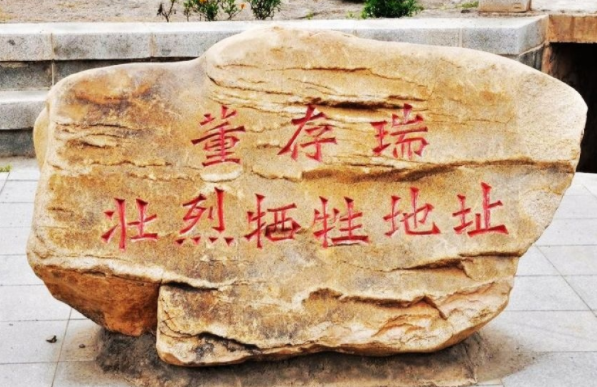 董存瑞
壮烈牺牲地址